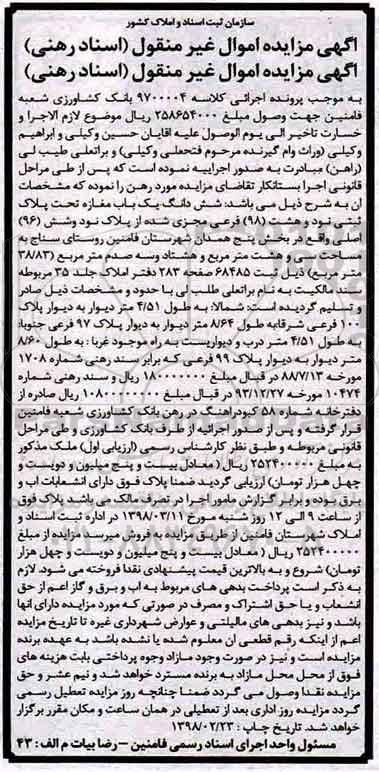 سازمان ثبت اسناد و املاک کشور
آگهی مزایده اموال غیر منقول (اسناد رهنی)
آگهی مزایده اموال غیر منقول (اسناد رهنی)
به موجب پرونده اجرائی کلاسه ۹۷۰۰۰۰۴ بانک کشاورزی شعبه
فامنین جهت وصول مبلغ ۲۵۸۶۵۴۰۰۰ ریال موضوع لازم الاجرا و
خسارت تاخیر الی یوم الوصول علیه اقایان حسین وکیلی و ابراهیم
وکیلی (وراث وام گیرنده مرحوم فتحعلی وکیلی) و براتعلی طیب لی
(راهن) مبادرت به صدور اجراییه نموده است که پس از طی مراحل
قانونی اجرا بستانکار تقاضای مزایده مورد رهن را نموده که مشخصات
ان به شرح ذیل می باشد: شش دانگ یک باب مغازه تحت پلاک
ثبتی نود و هشت (۹۸) فرعی مجزی شده از پلاک نود وشش (۹۶)
اصلی واقع در بخش پنج همدان شهرستان فامنین روستای سناج به
مساحت سی و هشت متر مربع و هشتاد وسه صدم متر مربع (۳۸/۸۳
متر مربع) ذیل ثبت ۶۸۴۸۵ صفحه ۲۸۳ دفتر املاک جلد ۳۵ مربوطه
سند مالکیت به نام براتعلی طلب لی با حدود و مشخصات ذیل صادر
و تسلیم گردیده است: شمالا: به طول ۴/۵۱ متر دیوار به دیوار پلاک
۱۰۰ فرعی شرقابه طول ۸/۶۴ متر دیوار به دیوار پلاک ۹۷ فرعی جنوبا:
به طول ۴/۵۱ متر درب و دیواریست به راه موجود غربا : به طول ۸/۶۰
متر دیوار به دیوار پلاک ۹۹ فرعی که برابر سند رهنی شماره ۱۷۰۸
مورخه ۸۸/۷/۱۳ در قبال مبلغ ۱۸۰۰۰۰۰۰۰ ریال و سند رهنی شماره
۱۰۴۷۴ مورخه ۹۳/۱۲/۲۷ در قبال مبلغ ۱۰۸۰۰۰۰۰۰۰ ریال صادره از
دفترخانه شماره ۵۸ کبودراهنگ در رهن بانک کشاورزی شعبه فامنین
قرار گرفته و پس از صدور اجرائیه از طرف بانک کشاورزی و طی مراحل
قانونی مربوطه و طبق نظر کارشناس رسمی (ارزیابی اول) ملک مذکور
به مبلغ ۲۵۲۴۰۰۰۰۰ ریال ( معادل بیست و پنج میلیون و دویست و
چهل هزار تومان) ارزیابی گردید ضمنا پلاک فوق دارای انشعابات اب و
برق بوده و برابر گزارش مامور اجرا در تصرف مالک می باشد پلاک فوق
از ساعت ۹ الی ۱۲ روز شنبه مورخ ۱۳۹۸/۰۳/۱۱ در اداره ثبت اسناد و
املاک شهرستان فامنین از طریق مزایده به فروش میرسد مزایده از مبلغ
۲۵۲۴۰۰۰۰۰ ریال ( معادل بیست و پنج میلیون و دویست و چهل هزار
تومان) شروع و به بالاترین قیمت پیشنهادی نقدا فروخته می شود. لازم
به ذکر است پرداخت بدهی های مربوط به اب و برق و گاز اعم از حق
انشعاب و یا حق اشتراک و مصرف در صورتی که مورد مزایده دارای آنها
باشد و نیز بدهی های مالیاتی و عوارض شهرداری غیره تا تاریخ مزایده
اعم از اینکه رقم قطعی ان معلوم شده یا نشده باشد به عهده برنده
مزایده است و نیز در صورت وجود مازاد وجوه پرداختی بابت هزینه های
فوق از محل محل مازاد به برنده مسترد خواهد شد و نیم عشر و حق
مزایده نقدا وصول می گردد ضمنا چنانچه روز مزایده تعطیل رسمی
گردد مزایده روز اداری بعد از تعطیلی در همان ساعت و مکان مقرر برگزار
خواهد شد. تاریخ چاپ : ۱۳۹۸/۰۲/۲۳
مسئول واحد اجرای اسناد رسمی فامنین – رضا بیات م الف : ۴۳